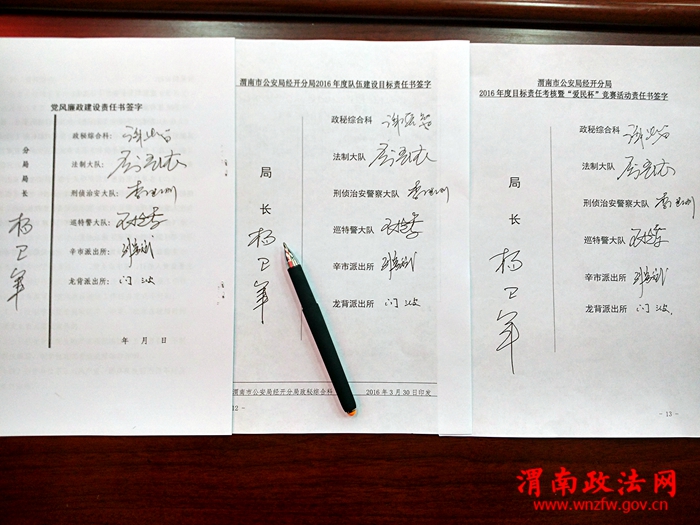 党风廉政建设责任书签字
分局局长
杨卫军
政秘综合科:
法制大队:
刑侦治安大队:
巡特警大队:
辛市派出所:
龙背派出所: 闫波
年 月 日
渭南市公安局经开分局2016年度队伍建设目标责任书签字
局长
杨卫军
政秘综合科
法制大队
刑侦治安警察大队
巡特警大队
辛市派出所
龙背派出所 闫波
渭南市公安局经开分局政秘综合科 2016年3月30日印发
12 -
渭南市公安局经开分局
2016年度目标责任考核暨“爱民杯”竞赛活动责任书签字
局长
杨卫军
政秘综合科
法制大队
刑侦治安警察大队
巡特警大队
辛市派出所
龙背派出所 闫波
- 13 -
渭南政法网
www.wnzfw.gov.cn